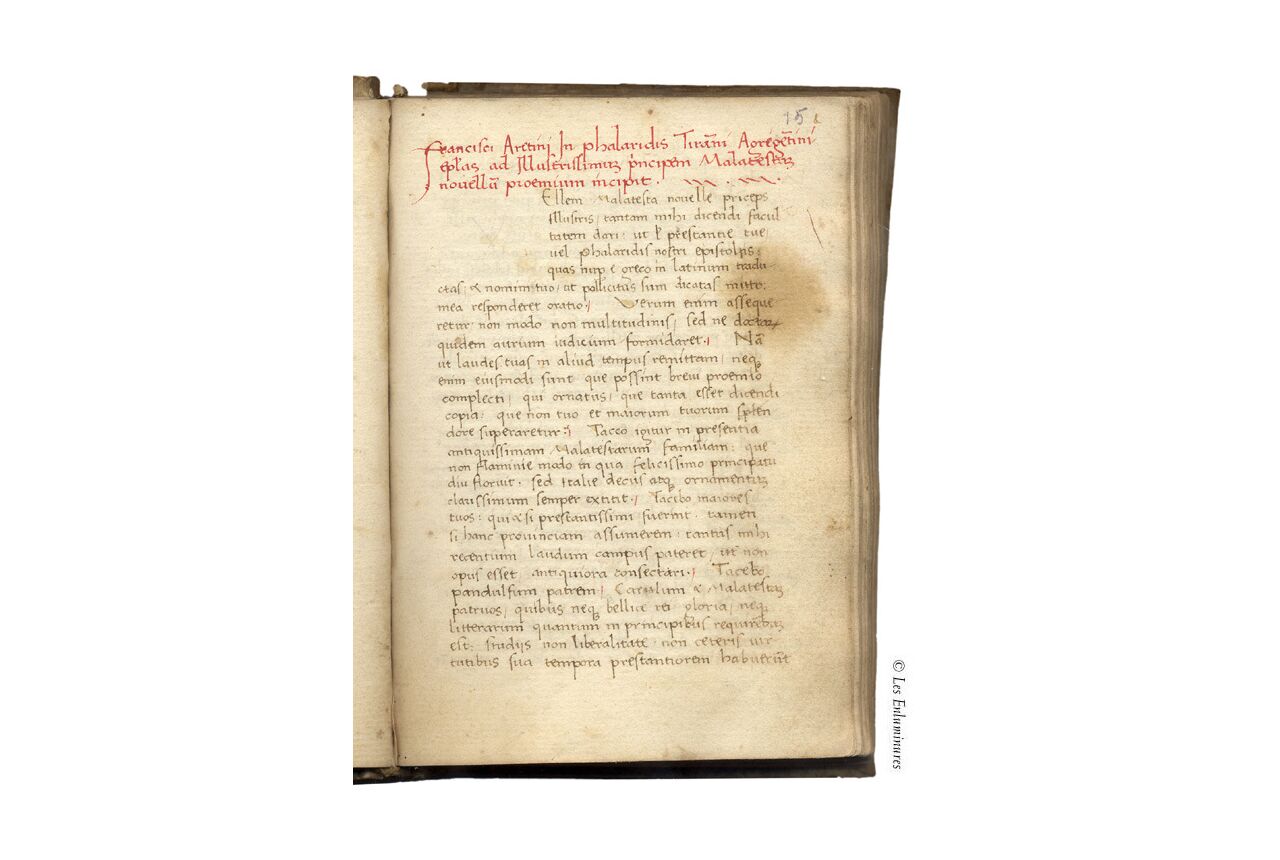 15
Francisci Aretini In phalaridis Tirāni Agregētini
epl̄as ad Illustrissimuȝ p̄ncipem Malatestaȝ
novellū proemium incipit.
Ellem Malatesta novelle priceps
illustris, tantam mihi dicendi facul
tatem dari: ut l p̄restantie tue,
vel phalaridis nostri epistolis:
quas nup e greco in latinum tradu
ctas, & nomini tuo, ut pollicitus sum dicatas mitto:
mea responderet oratio. Verum enim asseque
retur non modo non multitudinis, sed ne doctorꝝ
quidem aurium iudicium formidaret. Nā
ut laudes tuas in aliud tempus remittam, neqȝ
enim eiusmodi sunt que possint brevi proemio
complecti, qui ornatus, que tanta esset dicendi
copia: que non tuo et maiorum tuorum splen
dore superaretur: Taceo igitur in presentia
antiquissimam Malatestarum familiam: que
non flaminie modo in qua felicissimo principatu
diu floruit. sed Italie decus atqȝ ornamentuȝ
clarissimum semper extitit. Tacebo maiores
tuos: qui & si prestantissimi fuerint. tamen
si hanc provinciam assumerem: tantus mihi
recentum laudum campus pateret, ut non
opus esset, antiquiora consectari. Tacebo
pandulfum patrem, Carulum & Malatestaȝ
patruos, quibus neqȝ bellice rei gloria, neqȝ
litterarum quantum in principibus requirenduȝ
est: studijs non liberalitate, non ceteris vir
tutibus sua tempora prestantiorem habuerūt
© Les Enluminures